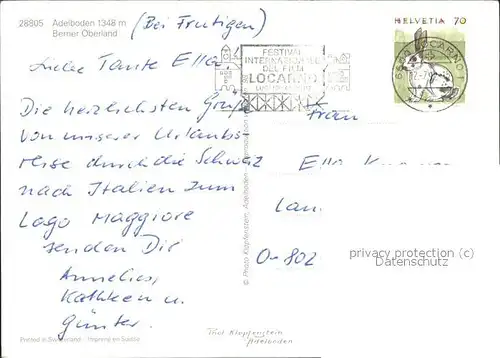 28805 Adelboden 1348 m (Bei Frutigen)
Berner Oberland
Liebe Tante Ella
Die herzlichsten Grüße
von unserer Urlaubs-
reise durch die Schweiz
nach Italien zum
Lago Maggiore
senden Dir
Annelies,
Kathleen u.
Günter.
Printed in Switzerland Imprimé en Suisse
© Photo Klopfenstein, Adelboden
HELVETIA 70
FESTIVAL
INTERNAZIONALE
DEL FILM
LOCARNO
LOCARNO 1
Frau
Ella
Lan
O-802
privacy protection (c)
Datenschutz
Phot Klopfenstein
Adelboden